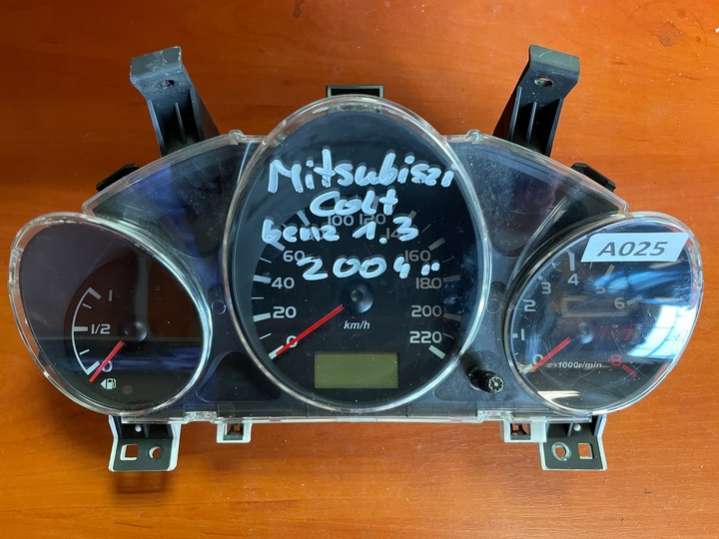 Mitsubiszi
Colt
benz 1.3
2004
A025
100 120
60
40
20
0
160
180
200
220
km/h
1
1/2
0
0
1
2
3
4
5
6
8
×1000r/min